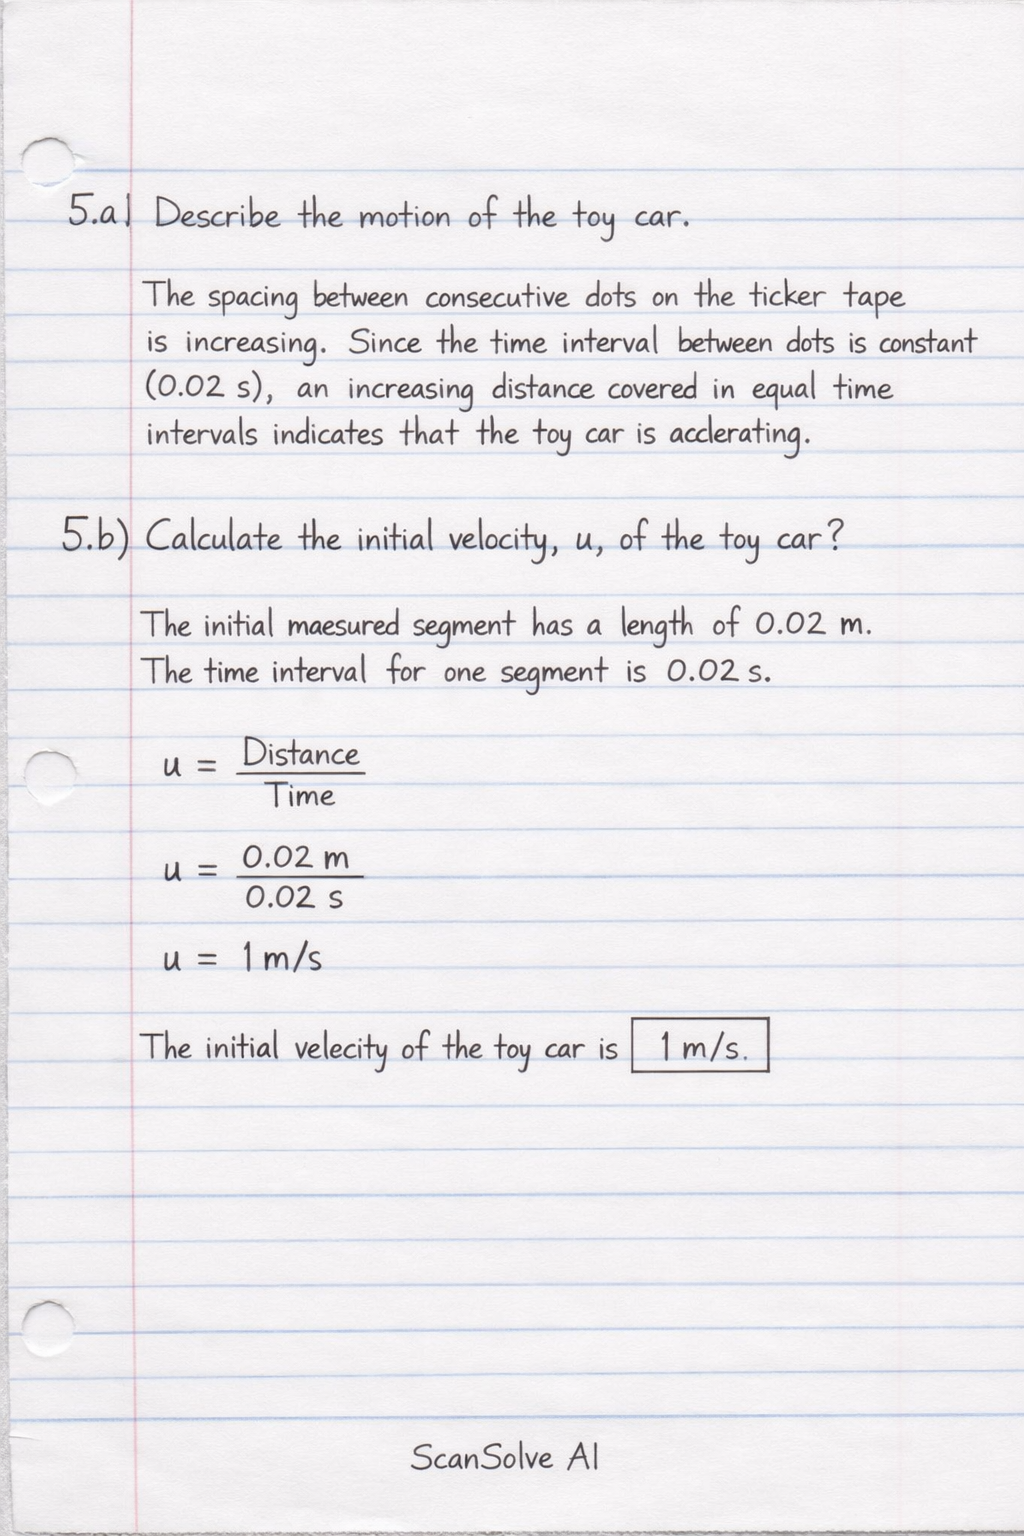 5.a) Describe the motion of the toy car.
The spacing between consecutive dots on the ticker tape
is increasing. Since the time interval between dots is constant
(0.02 s), an increasing distance covered in equal time
intervals indicates that the toy car is acclerating.
5.b) Calculate the initial velocity, u, of the toy car?
The initial maesured segment has a length of 0.02 m.
The time interval for one segment is 0.02 s.
u = Distance
Time
u = 0.02 m
0.02 s
u = 1 m/s
The initial velecity of the toy car is 1 m/s.
ScanSolve AI